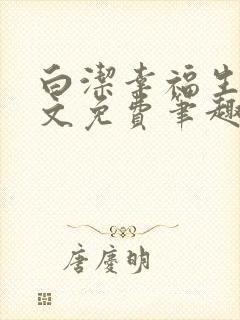 白潔幸福生
文免費筆趣
唐慶明